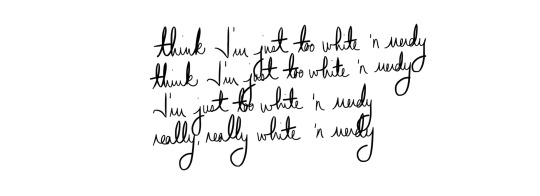 think I'm just too white 'n nerdy
think I'm just too white 'n nerdy
I'm just too white 'n nerdy
really, really white 'n nerdy